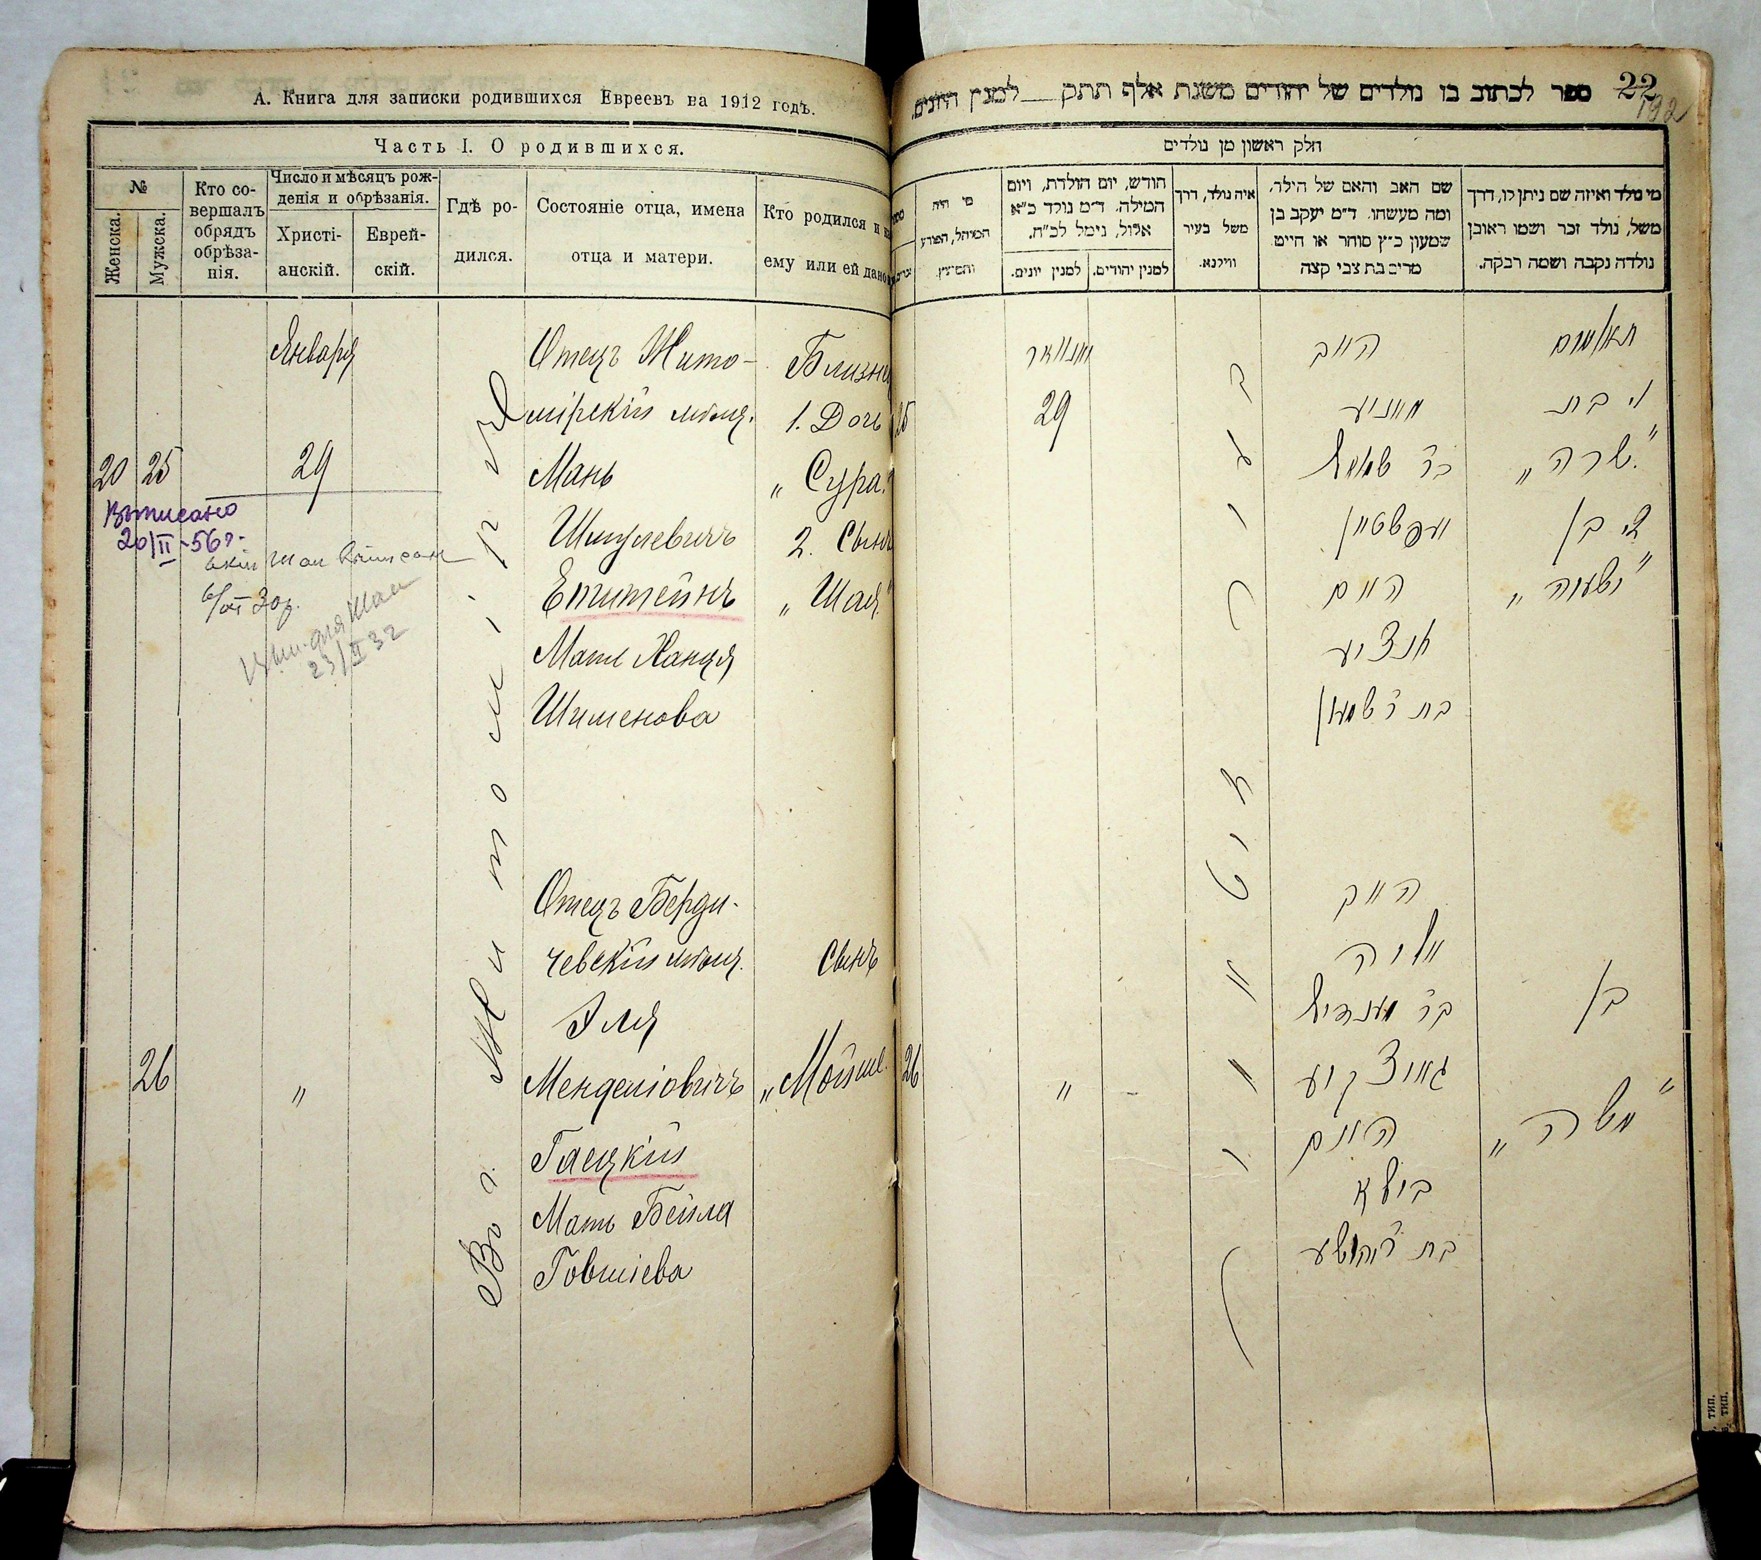 А. Книга для записки родившихся Евреевъ на 1912 годъ.
Часть I. О родившихся.
№
Женска.
Мужска.
Кто со-
вершалъ
обрядъ
обрѣза-
нія.
Число и мѣсяцъ рож-
денія и обрѣзанія.
Христі-
анскій.
Еврей-
скій.
Гдѣ ро-
дился.
Состояніе отца, имена
отца и матери.
Кто родился и
ему или ей дано
Января
20 25 29
Выписано
20/II-56 г.
23/II 32
Отецъ Жито-
мірскій мѣщ.
Мань
Шмулевичъ
Епштейнъ
Мать Ханця
Шименова
Близне
1. Дочь
„Сура."
2. Сынъ
„Шая."
26 „
Отецъ Берди-
чевскій мѣщ.
Эля
Менделіовичъ
Гацкій
Мать Бейла
Говшіева
Сынъ
„Мойше.
22
192
ספר לכתוב בו נולדים של יהודים משנת אלף תתק למנין היונים.
חלק ראשון מן נולדים
מי נולד ואיזה שם ניתן לו, דרך
משל, נולד זכר ושמו ראובן
נולדה נקבה ושמה רבקה.
שם האב והאם של הילד,
ומה מעשהו. ד״מ יעקב בן
שמעון כ״ץ סוחר או חייט
מרים בת צבי קצה
איה נולד, דרך
משל בעיר
ווילנא.
חודש, יום הולדת, ויום
המילה. ד״מ נולד כ״א
אלול, נימל לכ״ח.
למנין יהודים.
למנין יונים.
מי היה
המוהל, הפורע
והמוצץ.
תאומים
א׳ בת
„שרה"
ב׳ בן
„ישעיה"
האב
מאניע
בר׳ שמואל
עפשטיין
האם
חנציע
בת ר׳ שמעון
יאנואר
29
25
בן
„משה"
האב
אליה
בר׳ מענדיל
גאצקיע
האם
ביילא
בת ר׳ יהושע
„
26